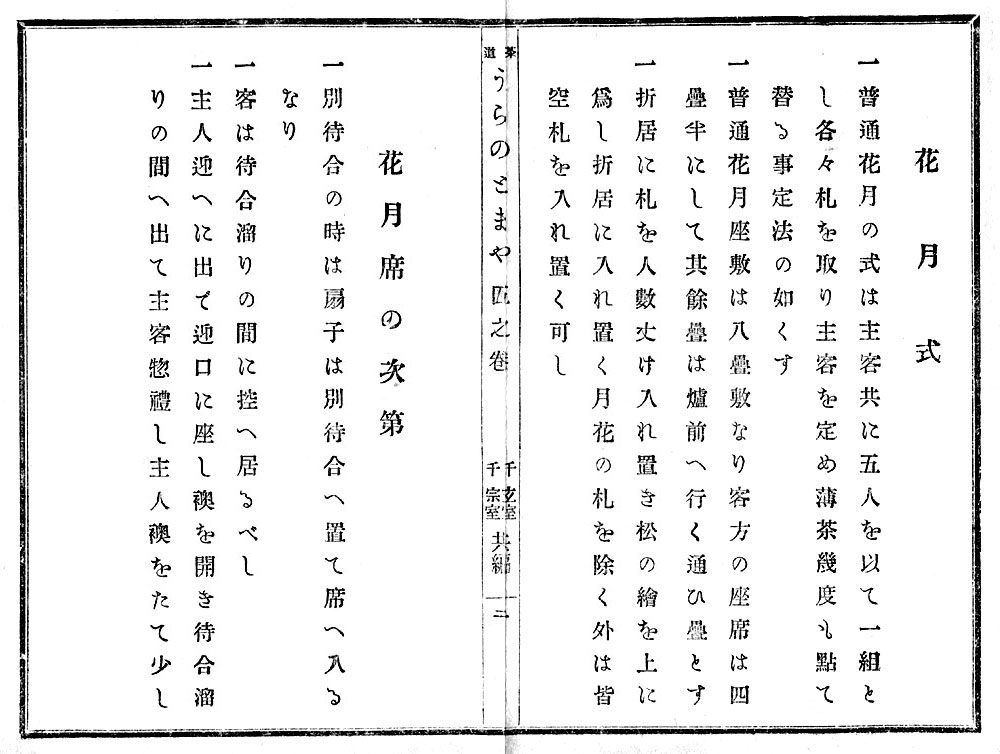 花月式
一普通花月の式は主客共に五人を以て一組と
し各々札を取り主客を定め薄茶幾度も點て
替る事定法の如くす
一普通花月座敷は八疊敷なり客方の座席は四
疊半にして其餘疊は爐前へ行く通ひ疊とす
一折居に札を人數丈け入れ置き松の繪を上に
爲し折居に入れ置く月花の札を除く外は皆
空札を入れ置く可し
茶道
うらのとまや
四之卷
千玄室
千宗室
共編
二
花月席の次第
一別待合の時は扇子は別待合へ置て席へ入る
なり
一客は待合溜りの間に控へ居るべし
一主人迎へに出で迎口に座し襖を開き待合溜
りの間へ出て主客惣禮し主人襖をたて少し